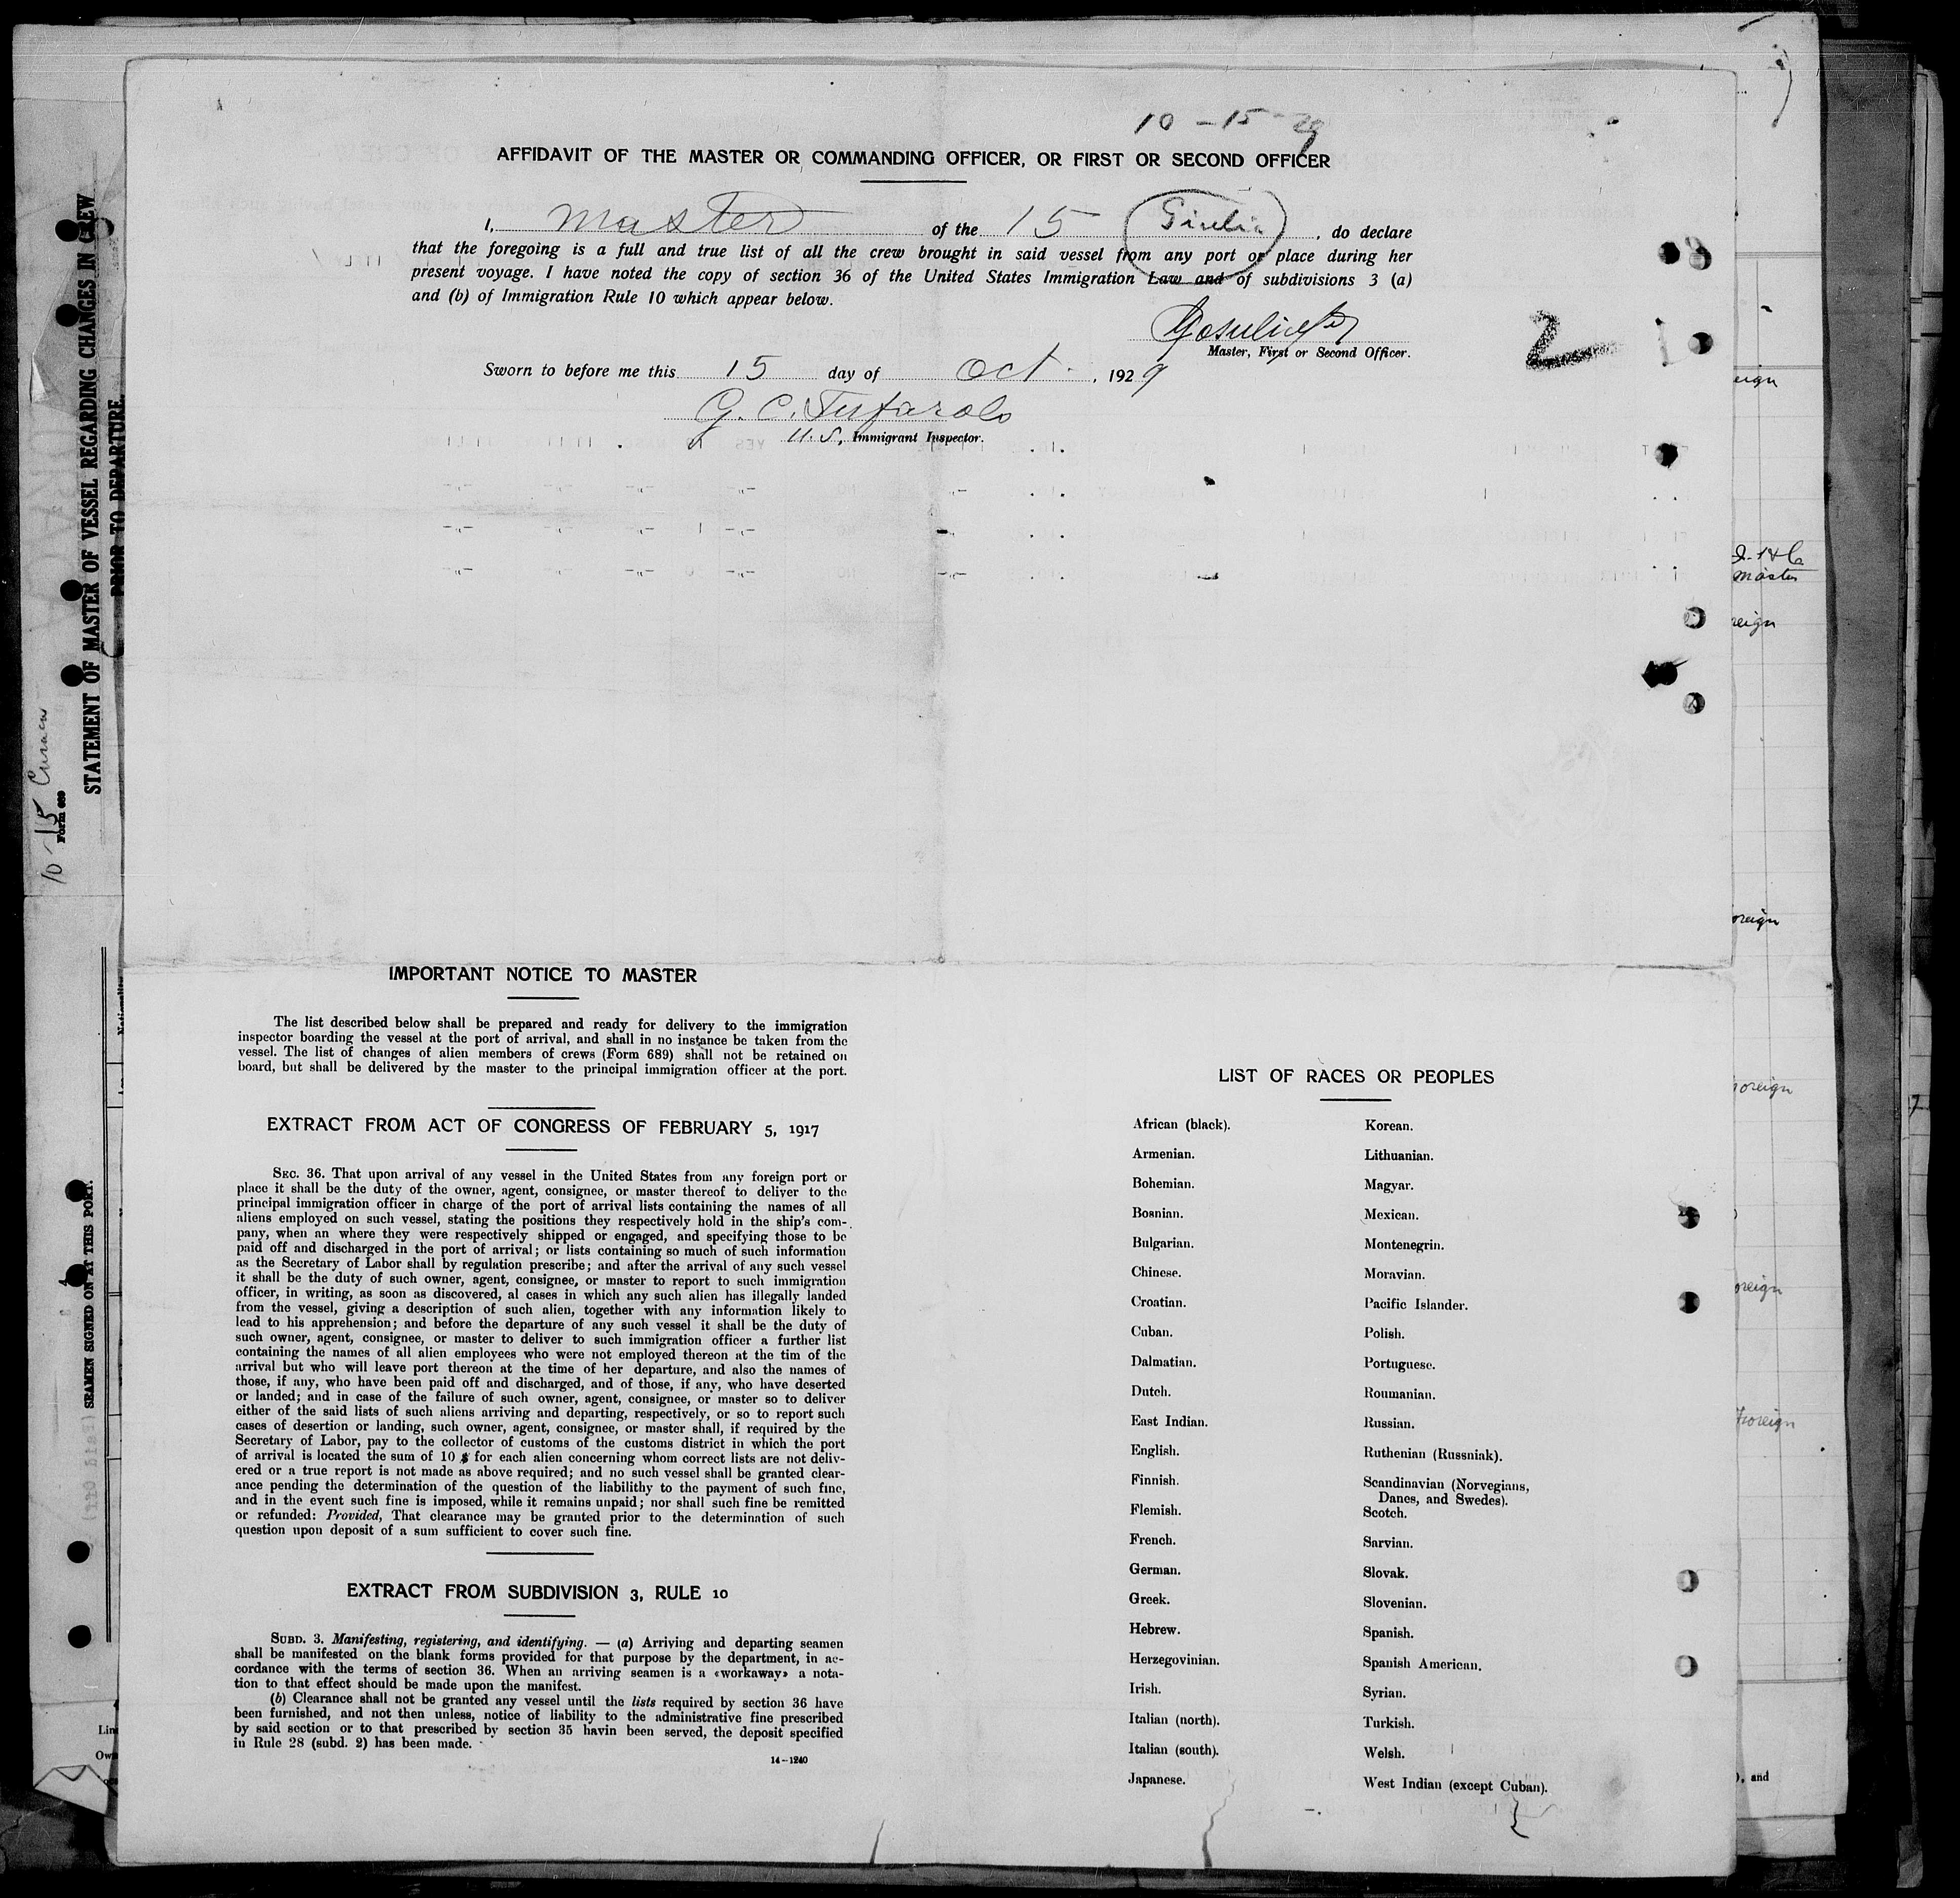 10-15-29
AFFIDAVIT OF THE MASTER OR COMMANDING OFFICER, OR FIRST OR SECOND OFFICER
I, Master of the 15 Giulia, do declare
that the foregoing is a full and true list of all the crew brought in said vessel from any port or place during her
present voyage. I have noted the copy of section 36 of the United States Immigration Law and of subdivisions 3 (a)
and (b) of Immigration Rule 10 which appear below.
Master, First or Second Officer.
2
Sworn to before me this 15 day of Oct. , 1929
G. C. Tufarolo
U.S. Immigrant Inspector.
IMPORTANT NOTICE TO MASTER
The list described below shall be prepared and ready for delivery to the immigration
inspector boarding the vessel at the port of arrival, and shall in no instance be taken from the
vessel. The list of changes of alien members of crews (Form 689) shall not be retained on
board, but shall be delivered by the master to the principal immigration officer at the port.
EXTRACT FROM ACT OF CONGRESS OF FEBRUARY 5, 1917
SEC. 36. That upon arrival of any vessel in the United States from any foreign port or
place it shall be the duty of the owner, agent, consignee, or master thereof to deliver to the
principal immigration officer in charge of the port of arrival lists containing the names of all
aliens employed on such vessel, stating the positions they respectively hold in the ship's com-
pany, when an where they were respectively shipped or engaged, and specifying those to be
paid off and discharged in the port of arrival; or lists containing so much of such information
as the Secretary of Labor shall by regulation prescribe; and after the arrival of any such vessel
it shall be the duty of such owner, agent, consignee, or master to report to such immigration
officer, in writing, as soon as discovered, al cases in which any such alien has illegally landed
from the vessel, giving a description of such alien, together with any information likely to
lead to his apprehension; and before the departure of any such vessel it shall be the duty of
such owner, agent, consignee, or master to deliver to such immigration officer a further list
containing the names of all alien employees who were not employed thereon at the tim of the
arrival but who will leave port thereon at the time of her departure, and also the names of
those, if any, who have been paid off and discharged, and of those, if any, who have deserted
or landed; and in case of the failure of such owner, agent, consignee, or master so to deliver
either of the said lists of such aliens arriving and departing, respectively, or so to report such
cases of desertion or landing, such owner, agent, consignee, or master shall, if required by the
Secretary of Labor, pay to the collector of customs of the customs district in which the port
of arrival is located the sum of 10 $ for each alien concerning whom correct lists are not deliv-
ered or a true report is not made as above required; and no such vessel shall be granted clear-
ance pending the determination of the question of the liabilithy to the payment of such fine,
and in the event such fine is imposed, while it remains unpaid; nor shall such fine be remitted
or refunded: Provided, That clearance may be granted prior to the determination of such
question upon deposit of a sum sufficient to cover such fine.
EXTRACT FROM SUBDIVISION 3, RULE 10
SUBD. 3. Manifesting, registering, and identifying. — (a) Arriving and departing seamen
shall be manifested on the blank forms provided for that purpose by the department, in ac-
cordance with the terms of section 36. When an arriving seamen is a «workaway» a nota-
tion to that effect should be made upon the manifest.
(b) Clearance shall not be granted any vessel until the lists required by section 36 have
been furnished, and not then unless, notice of liability to the administrative fine prescribed
by said section or to that prescribed by section 35 havin been served, the deposit specified
in Rule 28 (subd. 2) has been made.
14-1240
LIST OF RACES OR PEOPLES
African (black).
Armenian.
Bohemian.
Bosnian.
Bulgarian.
Chinese.
Croatian.
Cuban.
Dalmatian.
Dutch.
East Indian.
English.
Finnish.
Flemish.
French.
German.
Greek.
Hebrew.
Herzegovinian.
Irish.
Italian (north).
Italian (south).
Japanese.
Korean.
Lithuanian.
Magyar.
Mexican.
Montenegrin.
Moravian.
Pacific Islander.
Polish.
Portuguese.
Roumanian.
Russian.
Ruthenian (Russniak).
Scandinavian (Norvegians,
Danes, and Swedes).
Scotch.
Sarvian.
Slovak.
Slovenian.
Spanish.
Spanish American.
Syrian.
Turkish.
Welsh.
West Indian (except Cuban).
STATEMENT OF MASTER OF VESSEL REGARDING CHANGES IN CREW
PRIOR TO DEPARTURE
Form 689
10-15
SEAMEN SIGNED ON AT THIS PORT.
Master
, and